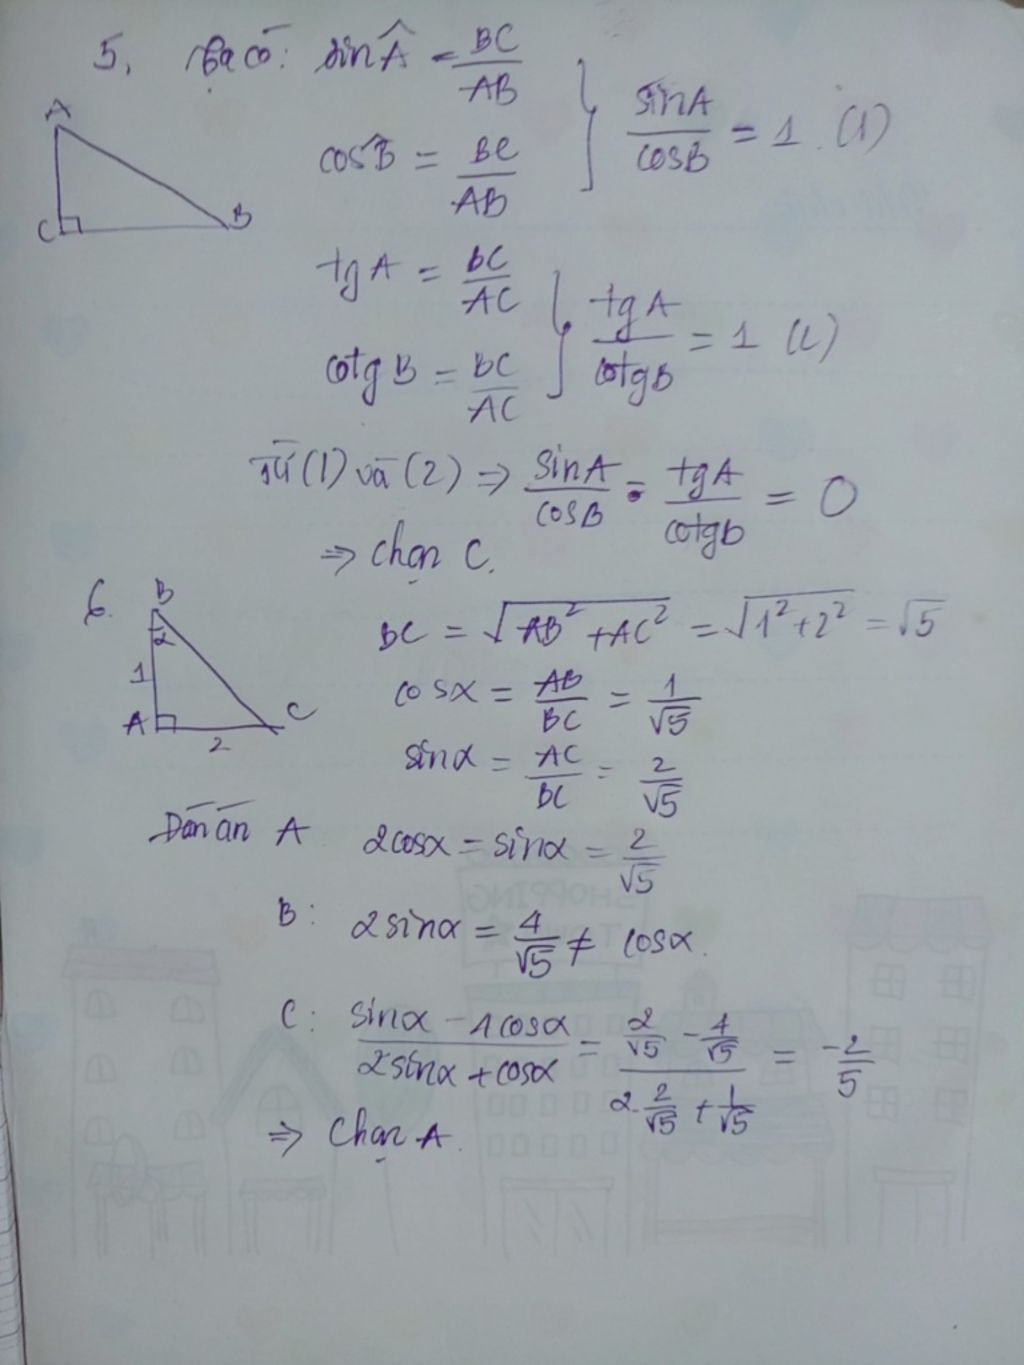 5. Ta có: sin Â = BC/AB
cosB̂ = BC/AB } sinA/cosB = 1 (1)
A
C B
tgA = BC/AC
cotgB = BC/AC } tgA/cotgB = 1 (2)
Từ (1) và (2) => sinA/cosB - tgA/cotgB = 0
=> Chọn C.
6. B
α
1
A C
2
BC = √(AB² + AC²) = √(1² + 2²) = √5
cosα = AB/BC = 1/√5
sinα = AC/BC = 2/√5
Đáp án A 2cosα = sinα = 2/√5
B: 2sinα = 4/√5 ≠ cosα.
C: (sinα - 4cosα)/(2sinα + cosα) = (2/√5 - 4/√5)/(2.2/√5 + 1/√5) = -2/5
=> Chọn A.
SHOPPING